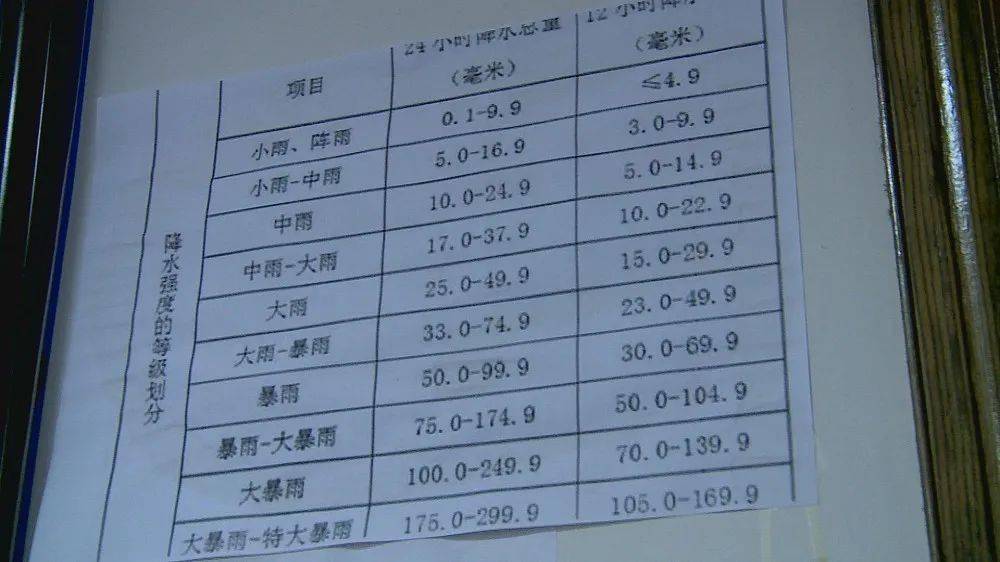 降水强度的等级划分
项目 24小时降水总量 12小时降水
（毫米） （毫米）
小雨、阵雨 0.1-9.9 ≤4.9
小雨-中雨 5.0-16.9 3.0-9.9
中雨 10.0-24.9 5.0-14.9
中雨-大雨 17.0-37.9 10.0-22.9
大雨 25.0-49.9 15.0-29.9
大雨-暴雨 33.0-74.9 23.0-49.9
暴雨 50.0-99.9 30.0-69.9
暴雨-大暴雨 75.0-174.9 50.0-104.9
大暴雨 100.0-249.9 70.0-139.9
大暴雨-特大暴雨 175.0-299.9 105.0-169.9